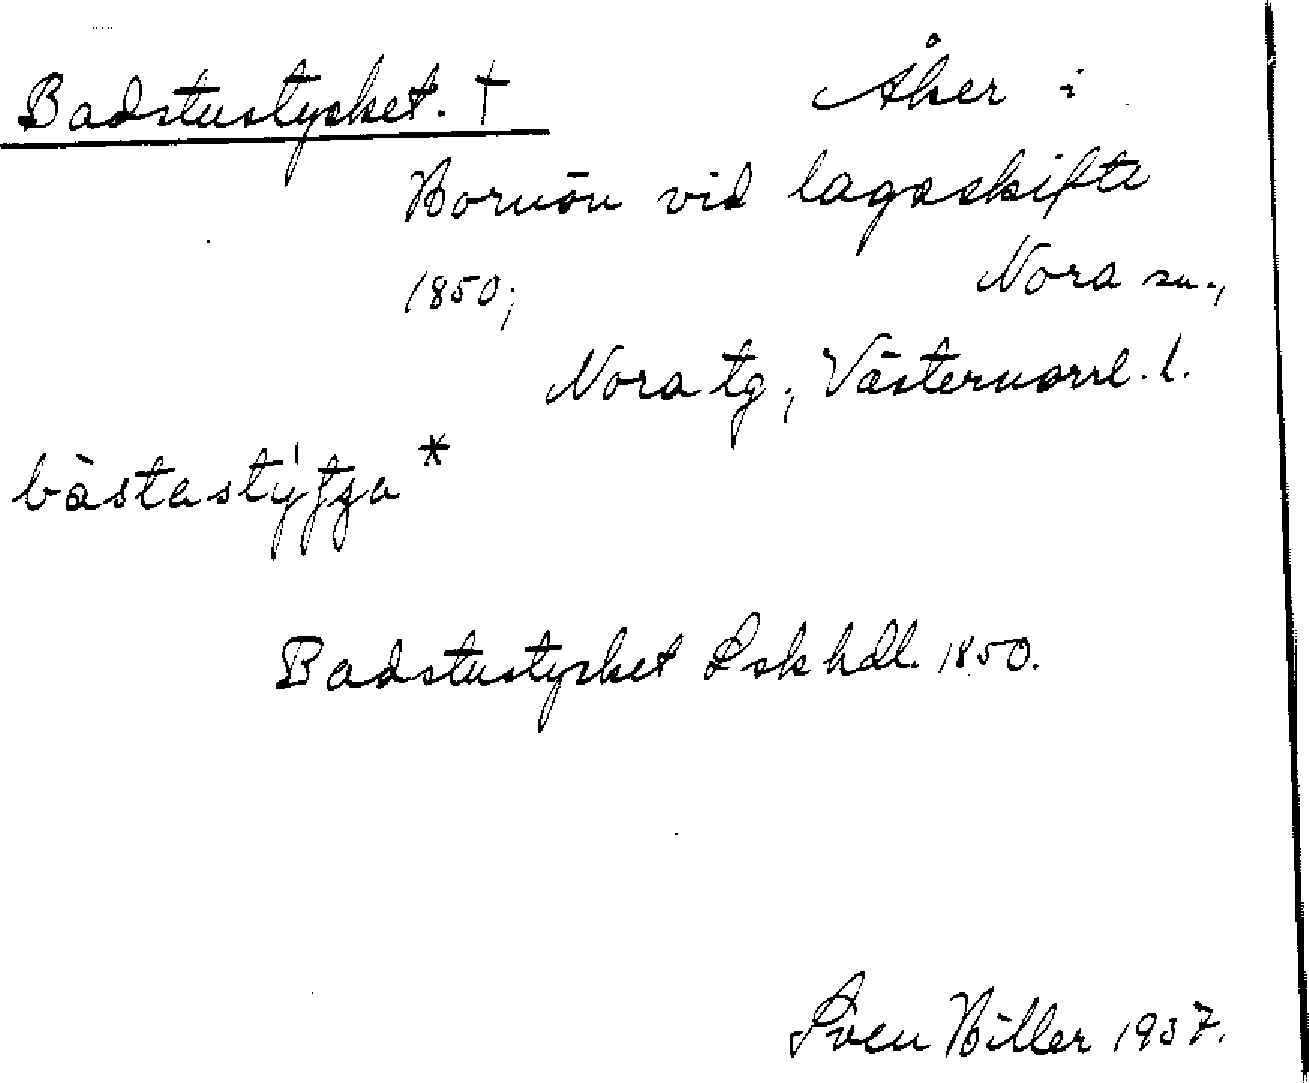 Badstustycket. †
Åker i
Bornön vid lagaskifte
1850;
Nora sn.,
Nora tg., Västernorrl. l.
Badstustycket Lsk hdl. 1850.
Sven Hiller 1937.